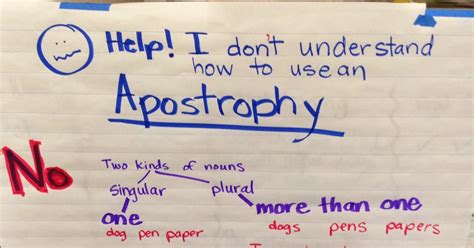 Help! I don't understand
how to use an
Apostrophy
No
Two kinds of nouns
singular plural
one more than one
dog pen paper dogs pens papers